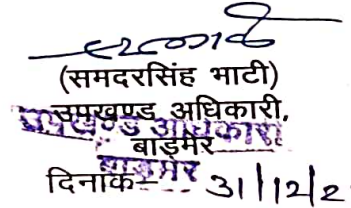 (समदरसिंह भाटी)
उपखण्ड अधिकारी,
उपखण्ड अधिकारी
बाड़मेर
बाड़मेर
दिनांक– 31/12/2